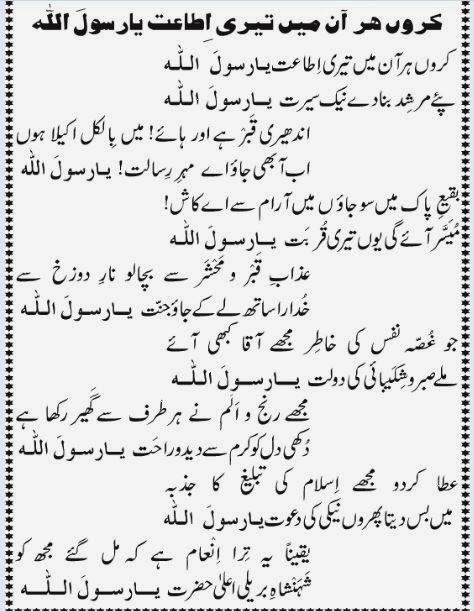 کروں ھر آن میں تیری اِطاعت یارسولَ اللہ
کروں ہر آن میں تیری اِطاعت یارسولَ اللہ
پئے مرشِد بنادے نیک سیرت یارسولَ اللہ
اندھیری قَبْر ہے اور ہائے! میں بِالکل اکیلا ہوں
اب آبھی جاؤ اے مہرِ رِسالت! یارسولَ اللہ
بقیعِ پاک میں سو جاؤں میں آرام سے اے کاش!
مُیَسَّر آئے گی یوں تیری قُربَت یارسولَ اللہ
عذابِ قَبْر و مَحْشَر سے بچالو نارِ دوزخ سے
خُدارا ساتھ لے کے جاؤ جنّت یارسولَ اللہ
جو غُصّہ نفس کی خاطِر مجھے آقا کبھی آئے
ملے صبر و شکَیبائی کی دولت یارسولَ اللہ
مجھے رنج و اَلَم نے ہر طرف سے گھیر رکھا ہے
دُکھی دل کو کرم سے دیدو راحَت یارسولَ اللہ
عطا کردو مجھے اِسلام کی تبلیغ کا جذبہ
میں بس دیتا پھروں نیکی کی دعوت یارسولَ اللہ
یقیناً یہ تِرا اِنْعام ہے کہ مل گئے مجھ کو
شَہَنْشاہِ بریلی اعلیٰ حضرت یارسولَ اللہ